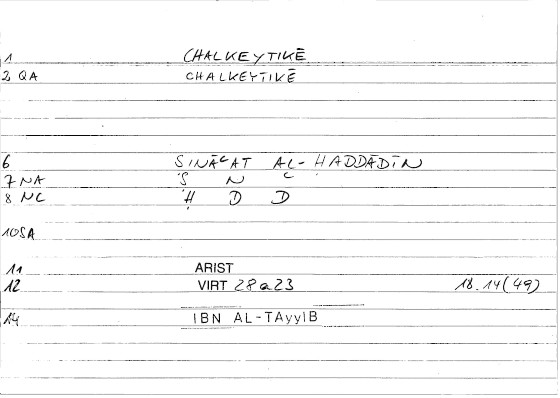 1 CHALKEYTIKĒ
2 QA CHALKEYTIKĒ
6 ṢINĀʿAT AL-ḤADDĀDĪN
7 NA Ṣ N ʿ
8 NC Ḥ D D
10SA
11 ARIST
12 VIRT 28a23 18.14(49)
14 IBN AL-TAyyIB